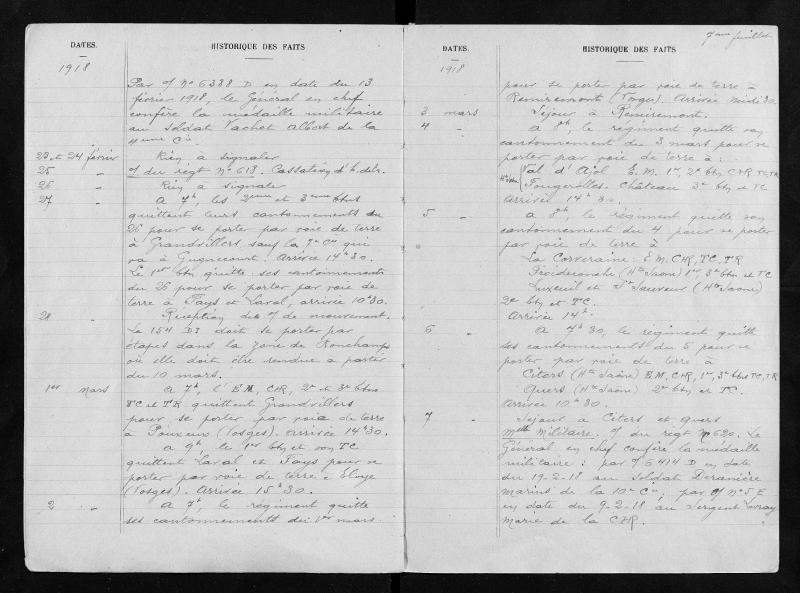 DATES.
HISTORIQUE DES FAITS
1918
Par O/ No 6388 D en date du 13
février 1918, le Général en chef
confère la médaille militaire
au soldat Vachet Albert de la
4eme Cie
23 et 24 février Rien à signaler
25 " O/ du régt No 618. Cassation d'h. défr.
26 " Rien à signaler
27 " A 7h, les 2eme et 3eme btns
quittent leurs cantonnements du
26 pour se porter par voie de terre
à Grandvillers sauf la 7e Cie qui
va à Gugnécourt. Arrivée 14h30.
Le 1er btn quitte ses cantonnements
du 26 pour se porter par voie de
terre à Fays et Laval, arrivée 10h30.
28 " Réception de O/ de mouvement.
La 154 DI doit se porter par
étapes dans la zone de Ronchamp
où elle doit être rendue à partir
du 10 mars.
1er mars A 7h, l'E.M, CHR, 2e et 3e btns
TC et TR quittent Grandvillers
pour se porter par voie de terre
à Pouxeux (Vosges). Arrivée 14h30.
A 9h le 1er btn et son TC
quittent Laval et Fays pour se
porter par voie de terre à Eloye
(Vosges). Arrivée 15h30.
2 " A 7h, le régiment quitte
ses cantonnements du 1er mars
7eme feuillet
DATES.
HISTORIQUE DES FAITS
1918
pour se porter par voie de terre à
Remiremont (Vosges). Arrivée midi 30.
3 mars Séjour à Remiremont.
4 " A 8h, le régiment quitte son
cantonnement du 3 mars pour se
porter par voie de terre à :
Val d'Ajol E.M. 1er, 2e btn CHR, TC, TR
Hte Saône Fougerolles. Château 3e btn et TC
Arrivée 14h30.
5 " A 8h, le régiment quitte son
cantonnement du 4 pour se porter
par voie de terre à
La Corveraine : E.M, CHR, TC, TR
Froideconche (Hte Saône) 1er, 3e btn et TC
Luxeuil et St Sauveur (Hte Saône)
2e btn et TC.
Arrivée 14h.
6 " A 7h30, le régiment quitte
ses cantonnements du 5 pour se
porter par voie de terre à
Citers (Hte Saône) E.M, CHR, 1er, 3e btns TC, TR
Quers (Hte Saône) 2e btn et TC.
Arrivée 10h30.
7 " Séjour à Citers et Quers
Mlle Militaire. O/ du régt No 620. Le
Général en chef confère la médaille
militaire : par O/ 6414 D en date
du 19-2-18 au soldat
Marius de la 10e Cie, par O/ No 5 E
en date du 9-2-18 au sergent
Marie de la CHR.